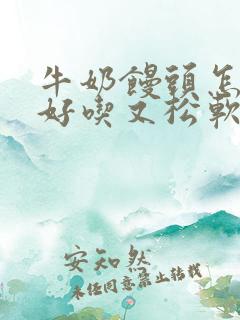 牛奶饅頭怎
好喫又松軟
安知然
未经同意禁止转载